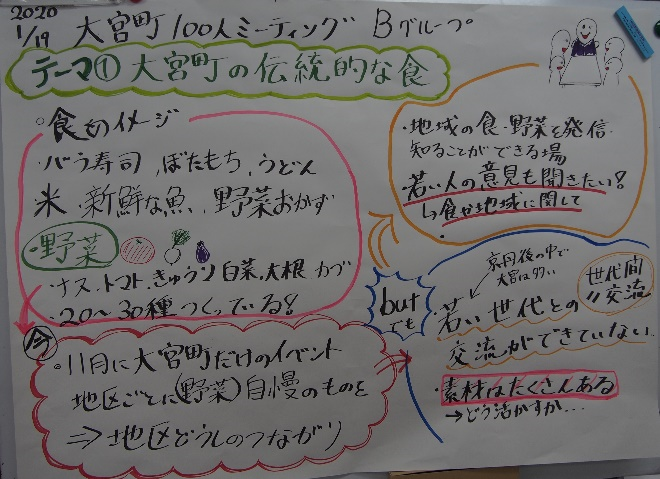 2020
1/19 大宮町100人ミーティング Bグループ
テーマ① 大宮町の伝統的な食
食のイメージ
・バラ寿司、ぼたもち、うどん
米、新鮮な魚、野菜おかず
・野菜
・ナス、トマト、きゅうり 白菜、大根 カブ
・20~30種つくっている!
今
・11月に大宮町だけのイベント
地区ごとに(野菜)自慢のものを
⇒地区どうしのつながり
・地域の食・野菜を発信
知ることができる場
若い人の意見も聞きたい!
↳食や地域に関して
but
でも
京丹後の中で
大宮は多い
世代間
交流
・若い世代との
交流ができていない
・素材はたくさんある
→どう活かすか…